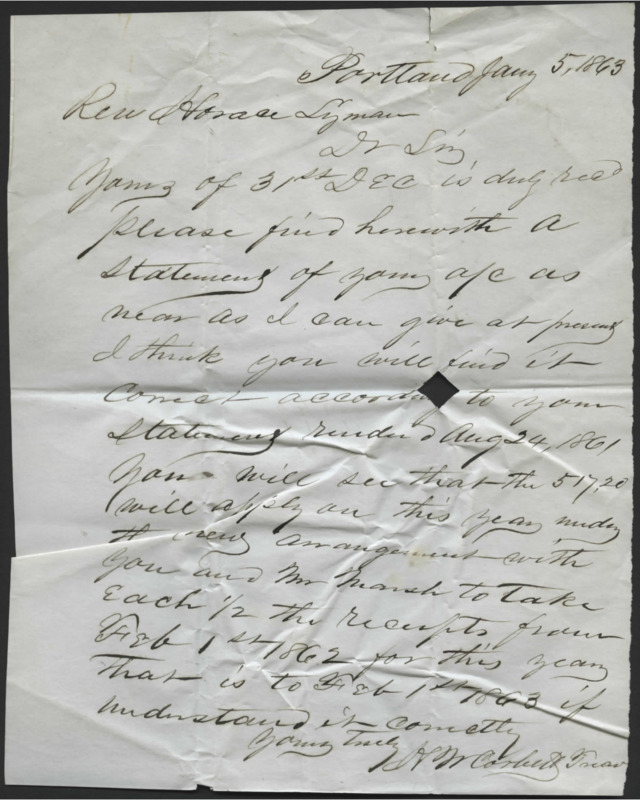 Portland Jany 5, 1863
Rev Horace Lyman
Dr Sir
Yours of 31st Dec is duly recd
please find herewith a
Statement of your a/c as
near as I can give at present
I think you will find it
Correct according to your
Statement rendered Aug 24, 1861
You will see that the 517,20
will apply on this year under
the new arrangement with
you and Mr Marsh to take
Each 1/2 the receipts from
Feb 1st 1862 for this year
that is to Feb 1st 1863 if
understand it correctly
Yours truly
H W Corbett Treas